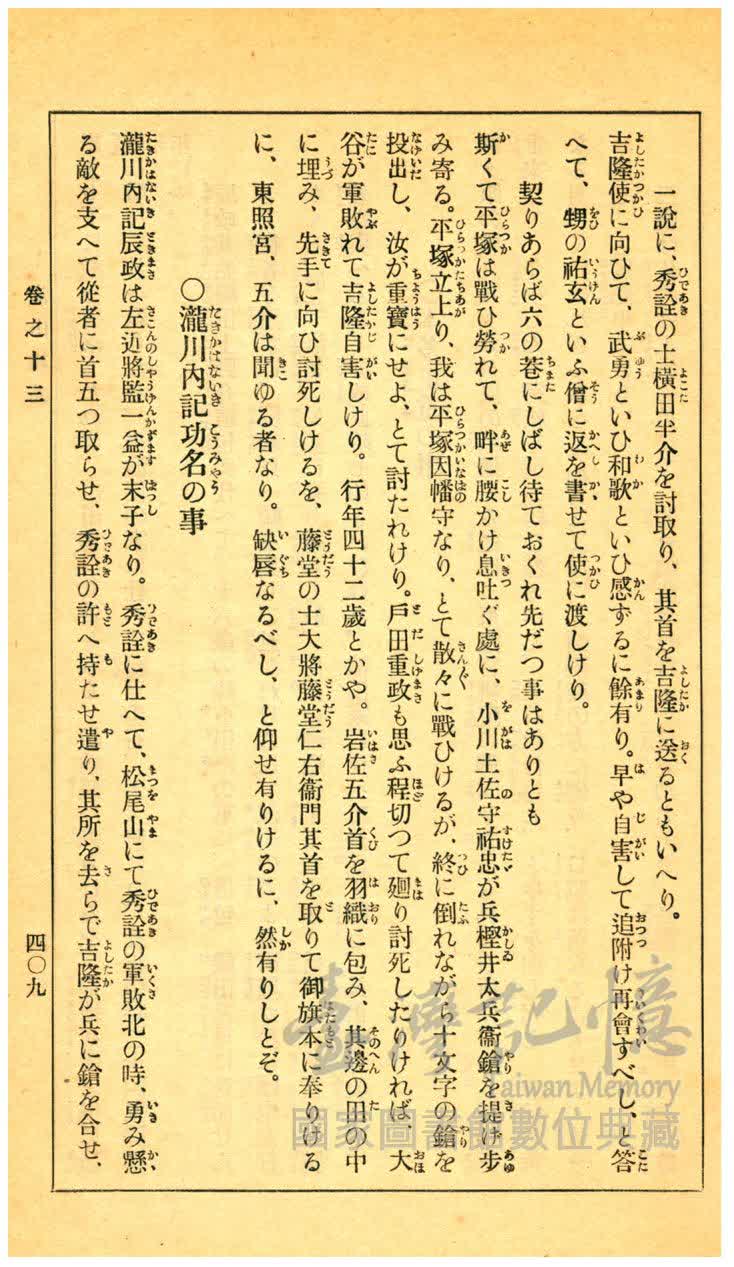 一說に、秀詮の士橫田半介を討取り、其首を吉隆に送るともいへり。
吉隆使に向ひて、武勇といひ和歌といひ感ずるに餘有り。早や自害して追附け再會すべし、と答
へて、甥の祐玄といふ僧に返を書せて使に渡しけり。
契りあらば六の巷にしばし待ておくれ先だつ事はありとも
斯くて平塚は戰ひ勞れて、畔に腰かけ息吐ぐ處に、小川土佐守祐忠が兵樫井太兵衞鎗を提げ步
み寄る。平塚立上り、我は平塚因幡守なり、とて散々に戰ひけるが、終に倒れながら十文字の鎗を
投出し、汝が重寶にせよ、とて討たれけり。戶田重政も思ふ程切つて廻り討死したりければ、大
谷が軍敗れて吉隆自害しけり。行年四十二歲とかや。岩佐五介首を羽織に包み、其邊の田の中
に埋み、先手に向ひ討死しけるを、藤堂の士大將藤堂仁右衞門其首を取りて御旗本に奉りける
に、東照宮、五介は聞ゆる者なり。缺唇なるべし、と仰せ有りけるに、然有りしとぞ。
〇瀧川內記功名の事
瀧川內記辰政は左近將監一益が末子なり。秀詮に仕へて、松尾山にて秀詮の軍敗北の時、勇み懸
る敵を支へて從者に首五つ取らせ、秀詮の許へ持たせ遣り、其所を去らで吉隆が兵に鎗を合せ、
卷之十三
四〇九
臺灣記憶
Taiwan Memory
國家圖書館數位典藏